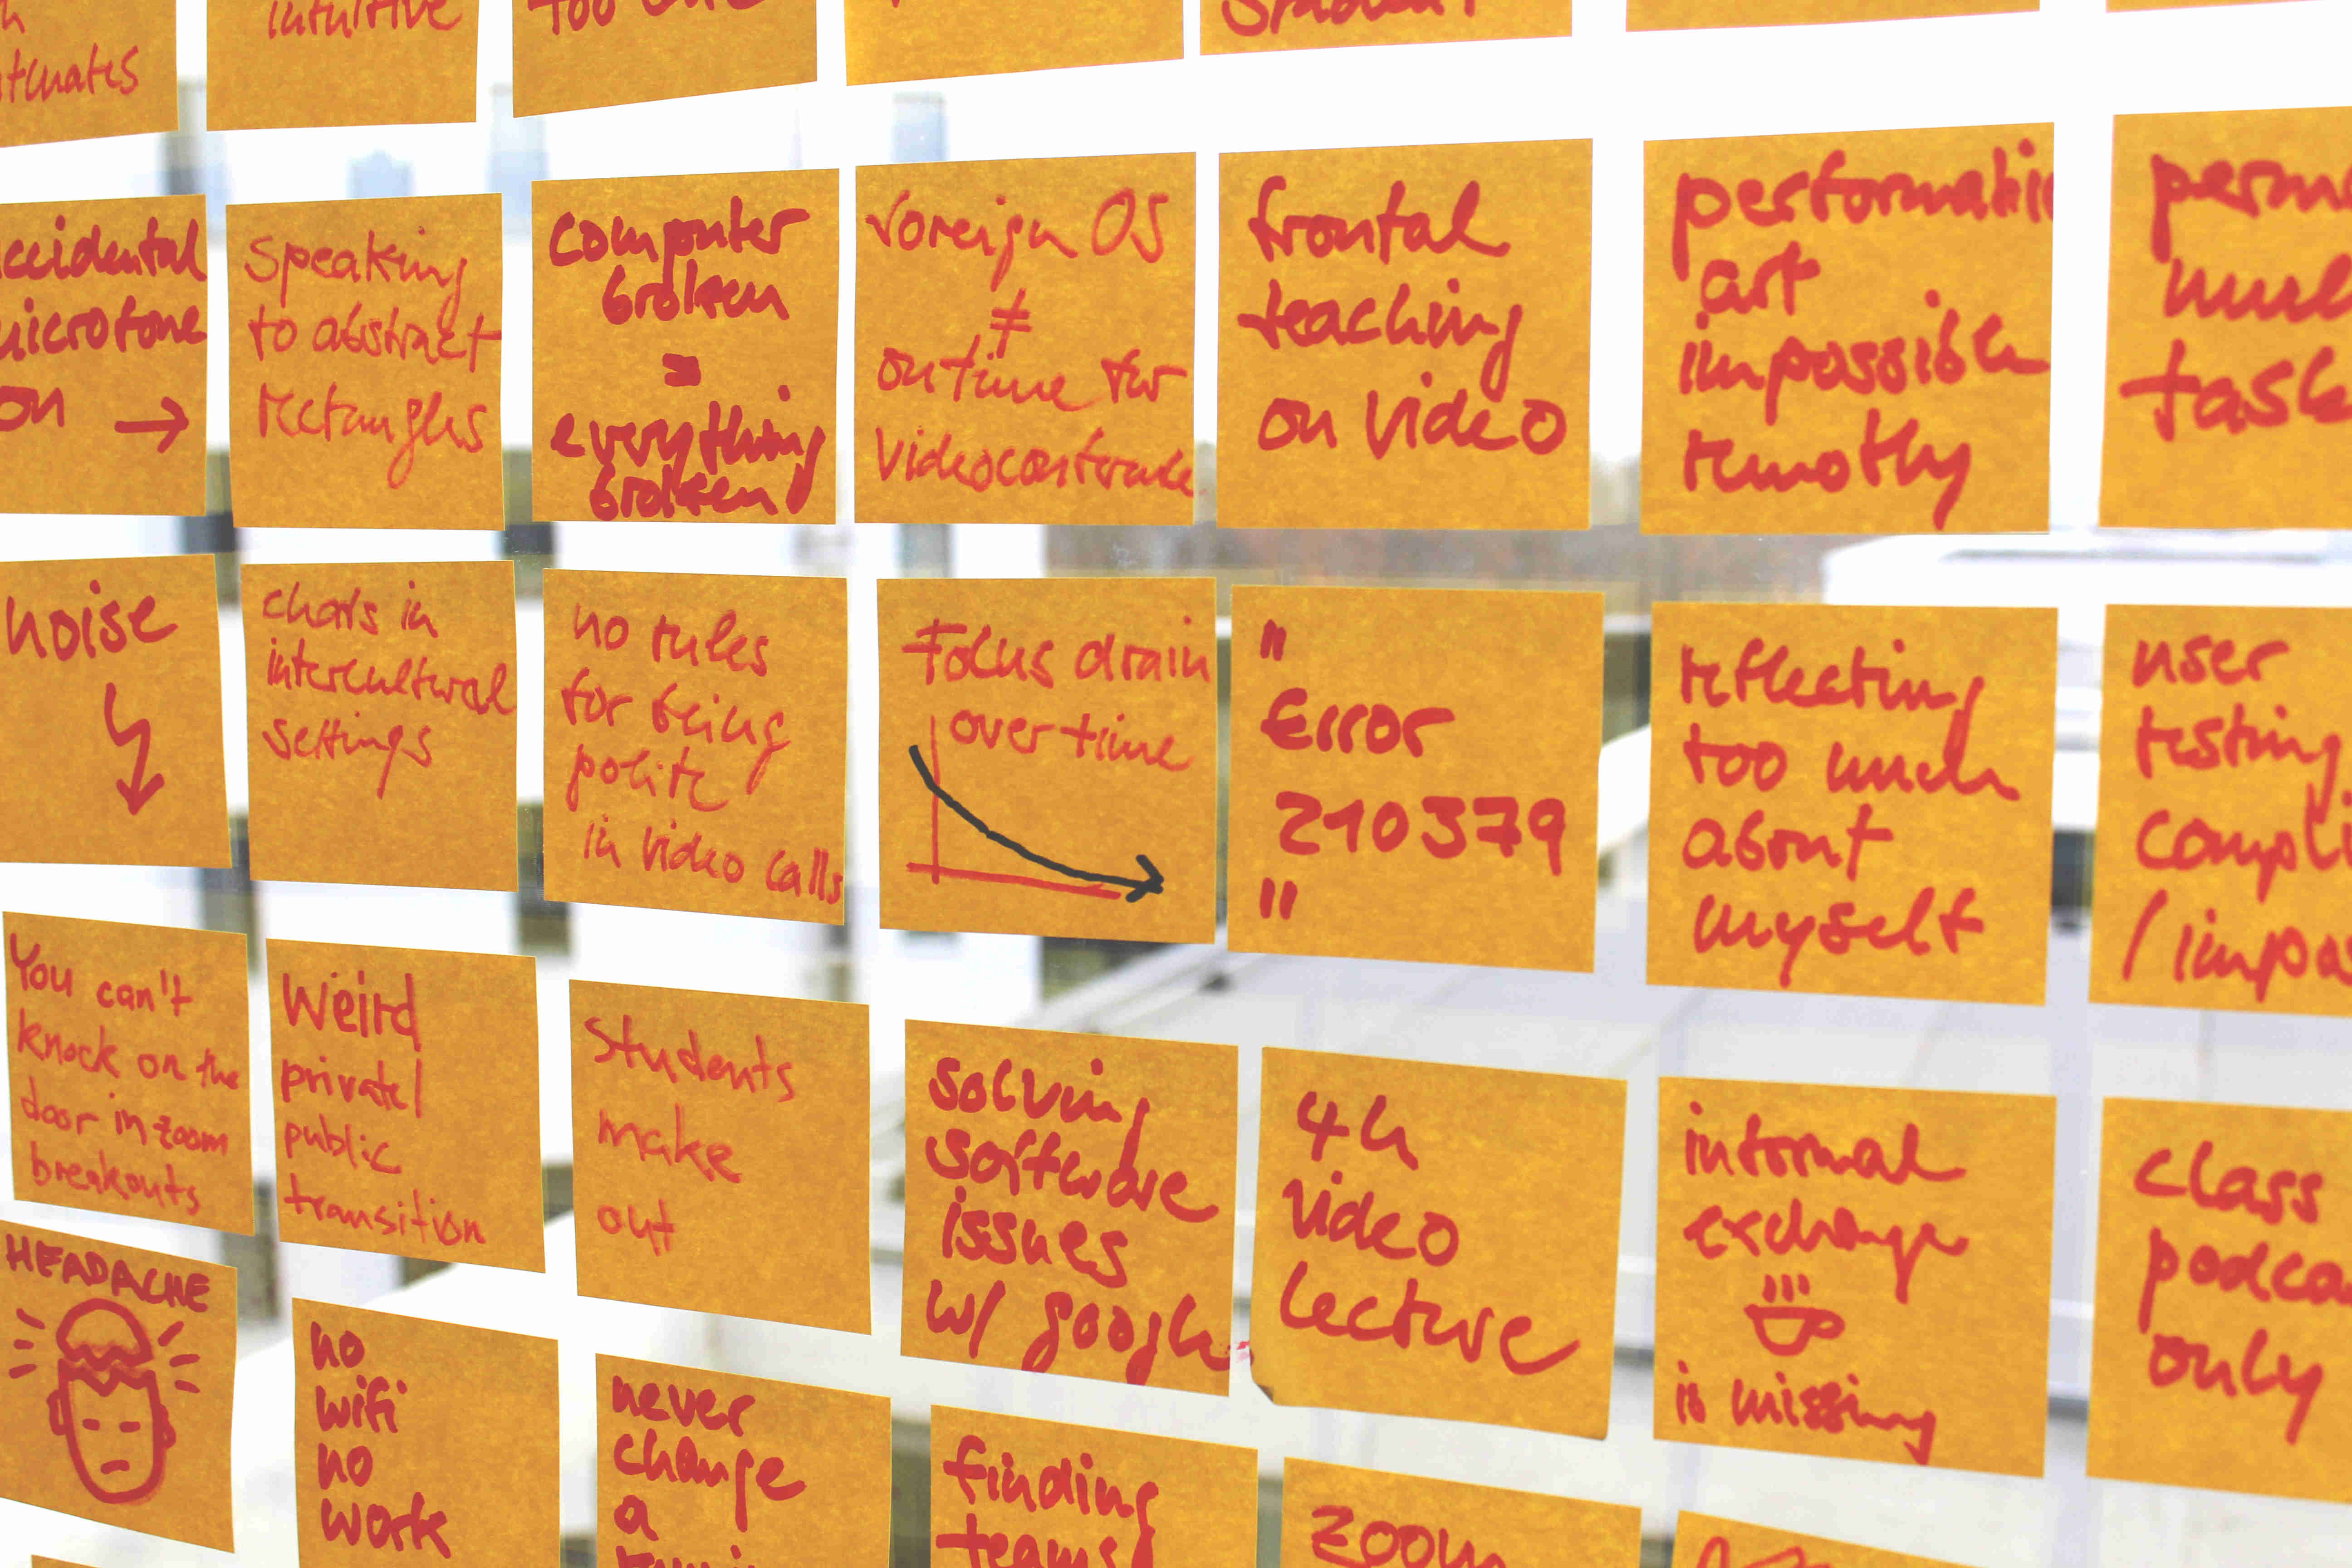 intuitive
too
student
ccidental
microtone
on →
speaking
to abstract
rectangles
computer
broken
=
everything
broken!
voreign OS
≠
ontime for
frontal
teaching
on video
art
impossible
remotly
noise
chats in
intercultural
settings
no rules
for being
polite
in video calls
Focus drain
over time
"
Error
210379
"
reflecting
too much
about
myself
user
testing
/
You can't
knock on the
door in zoom
breakouts
Weird
private/
public
transition
students
make
out
solving
software
issues
w/ google
4h
video
lecture
informal
exchange
is missing
class
only
HEADACHE
no
wifi
no
work
never
change
a
finding
teams
zoom